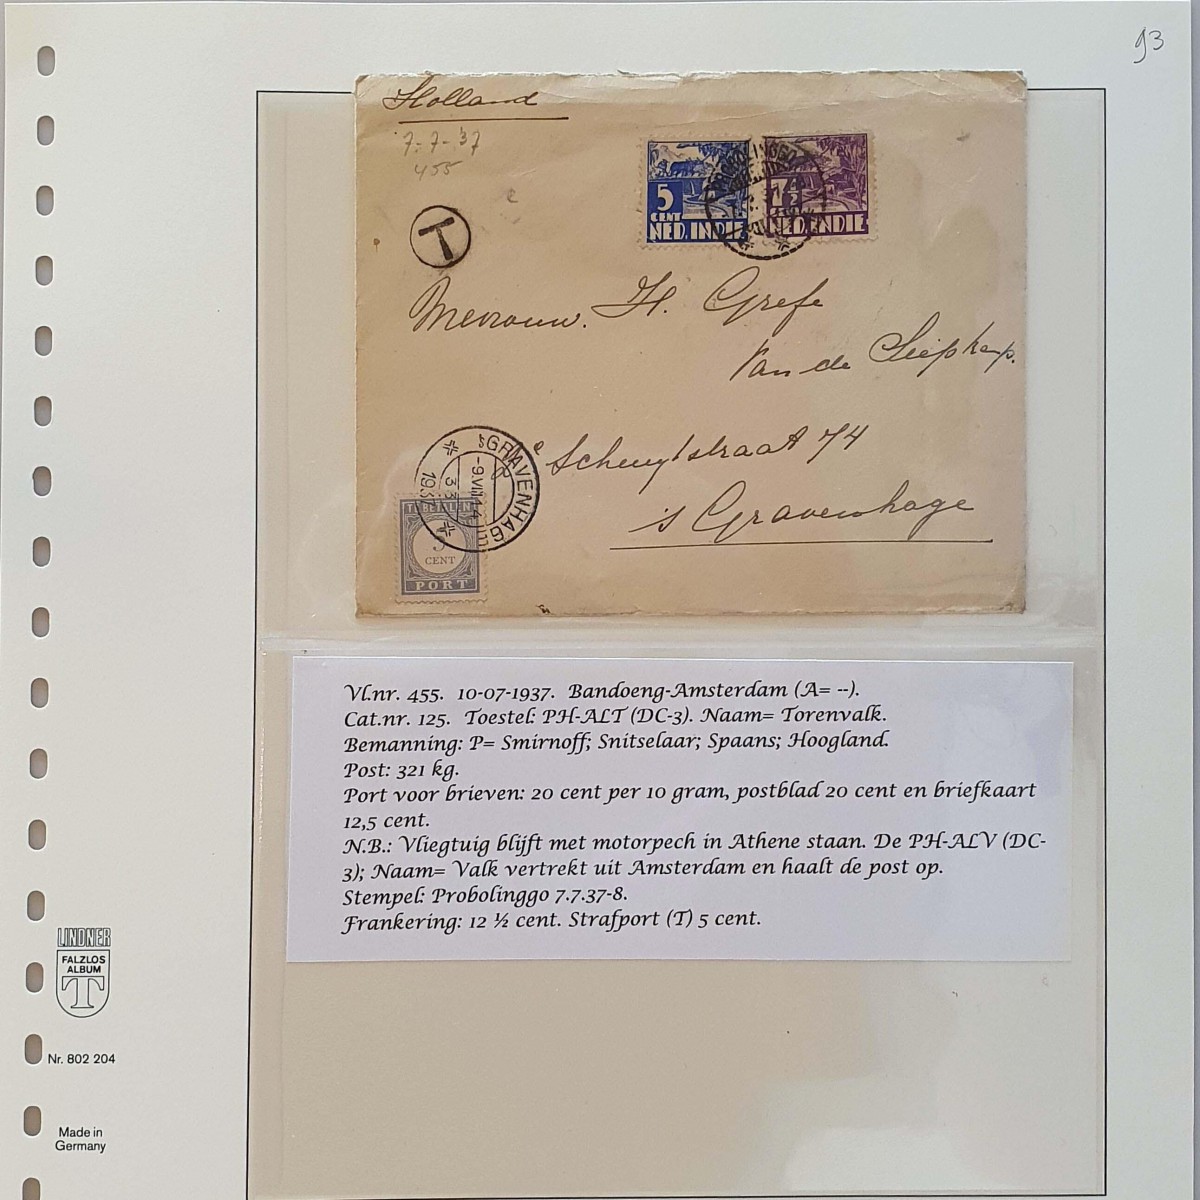 93
Holland
7-7-'37
455
T
5
CENT
NED. INDIE
7½
CENT
NED. INDIE
Mevrouw. H. Grefe
Van de
Schuytstraat 74
's Gravenhage
'sGRAVENHAGE
1937
CENT
PORT
Vl.nr. 455. 10-07-1937. Bandoeng-Amsterdam (A= --).
Cat.nr. 125. Toestel: PH-ALT (DC-3). Naam= Torenvalk.
Bemanning: P= Smirnoff; Snitselaar; Spaans; Hoogland.
Post: 321 kg.
Port voor brieven: 20 cent per 10 gram, postblad 20 cent en briefkaart
12,5 cent.
N.B.: Vliegtuig blijft met motorpech in Athene staan. De PH-ALV (DC-
3); Naam= Valk vertrekt uit Amsterdam en haalt de post op.
Stempel: Probolinggo 7.7.37-8.
Frankering: 12 ½ cent. Strafport (T) 5 cent.
LINDNER
FALZLOS
ALBUM
T
Nr. 802 204
Made in
Germany